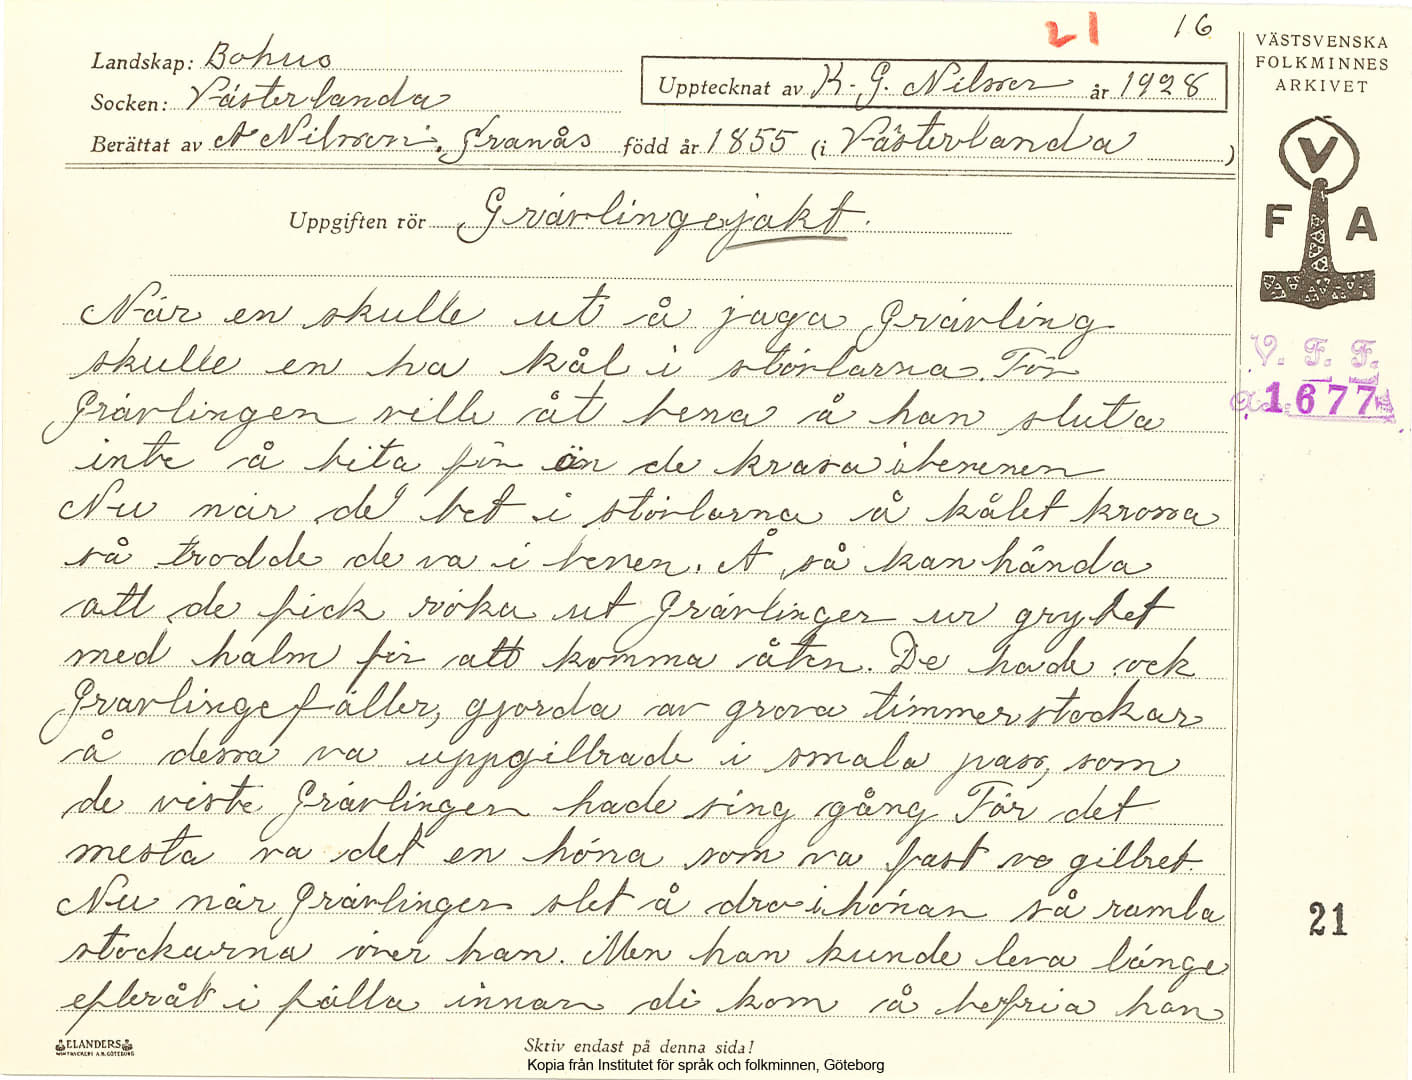 21
16
Landskap: Bohus
Socken: Västerlanda
Upptecknat av K-G. Nilsson år 1928
Berättat av A Nilsson. Granås född år 1855 (i Västerlanda )
Uppgiften rör Grävlingejakt.
När en skulle ut å jaga Grävling
skulle en ha kål i stövlarna. För
Grävlingen ville åt bena å han sluta
inte å bita för än de krasa i benenen
Nu när de bet i stövlarna å kålet krossa
så trodde de va i benen. Å så kan hända
att de fick röka ut Grävlingen ur grytet
med halm för att komma åten. De hade ock
Gravlingefäller, gjorda av grova timmerstockar
å dessa va uppgillrade i smala pass, som
de viste Grävlingen hade sing gång För det
mesta va det en höna som va fast ve gillret.
Nu när Grävlingen slet å dro i hönan så ramla
stockarna över han. Men han kunde leva länge
efteråt i fälla innan di kom å befria han
Skriv endast på denna sida!
ELANDERS
BOKTRYCKERI A.B. GÖTEBORG
Kopia från Institutet för språk och folkminnen, Göteborg
VÄSTSVENSKA
FOLKMINNES
ARKIVET
V
F A
V. F. F.
1677
21